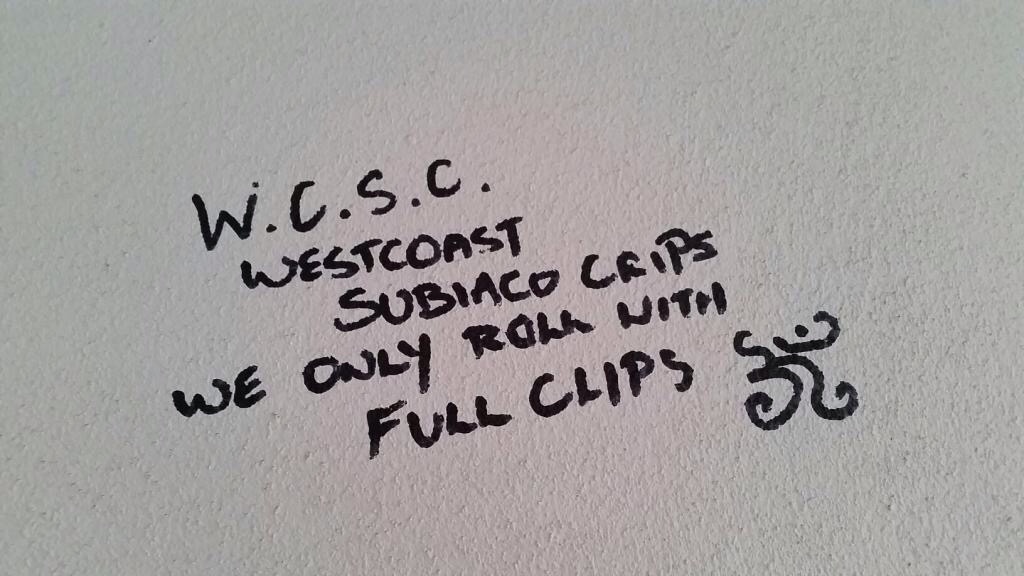 W.C.S.C.
WESTCOAST
SUBIACO CRIPS
WE ONLY ROLL WITH
FULL CLIPS